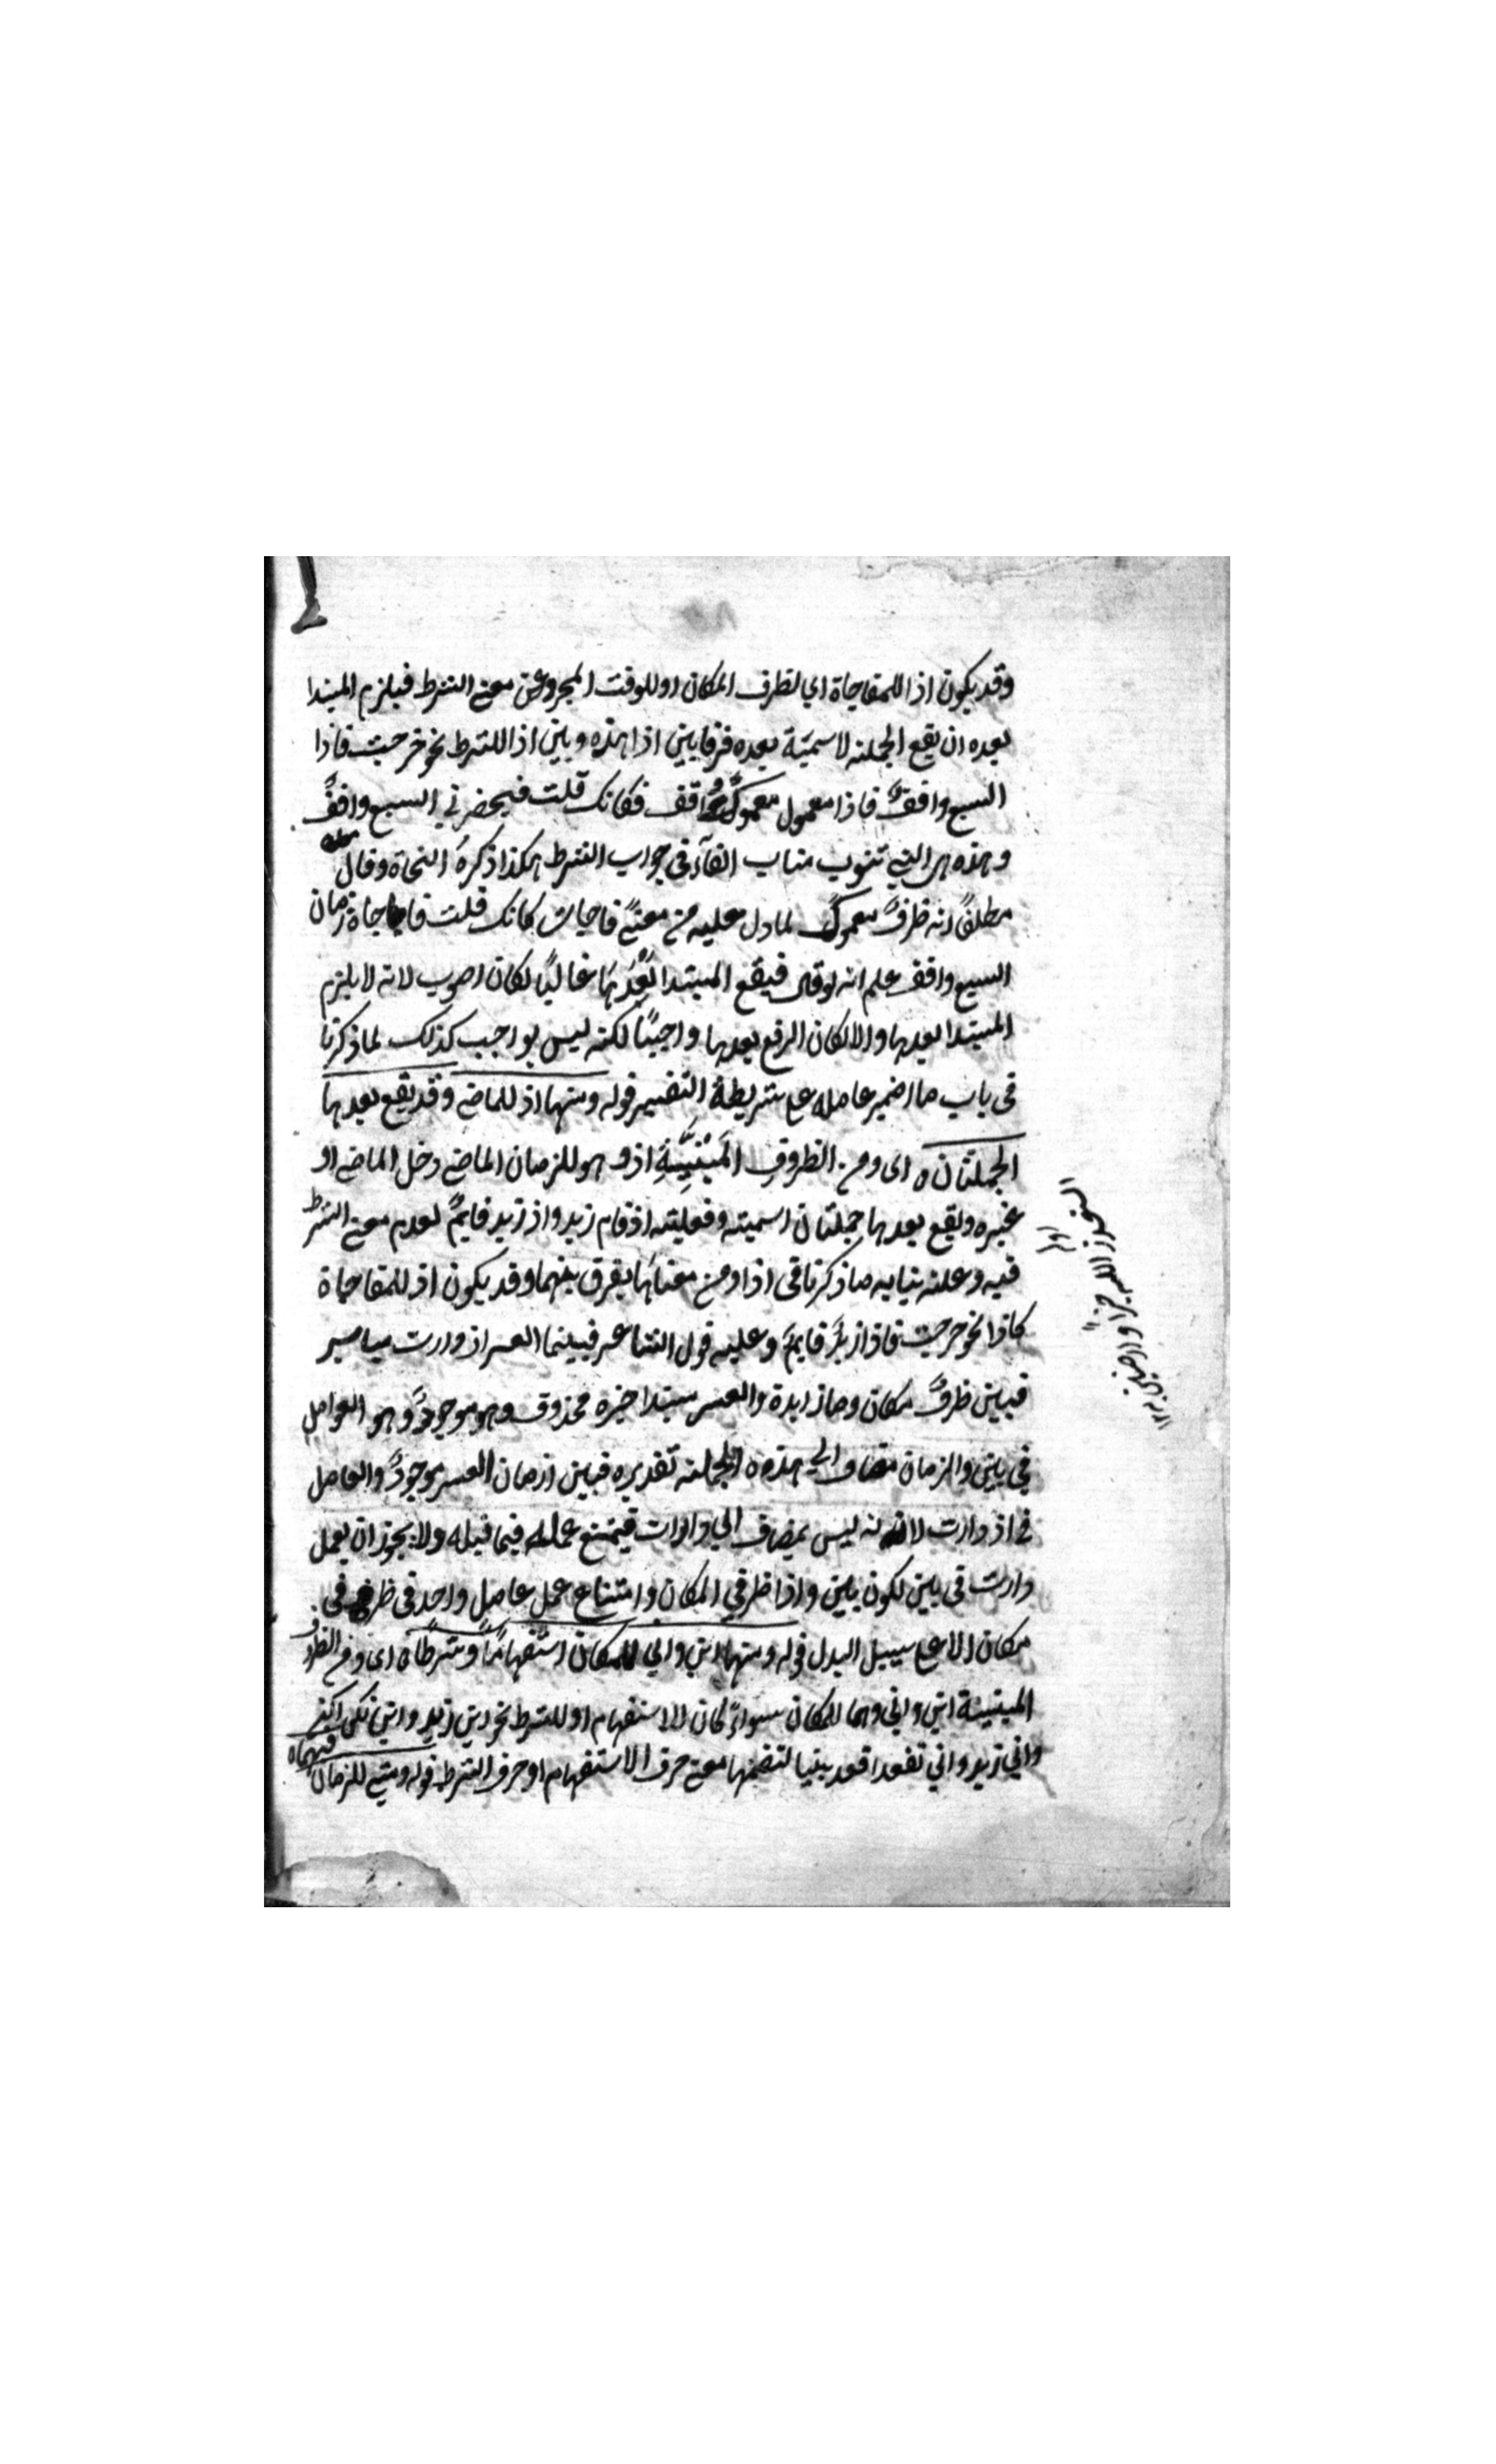 وقد يكون اذا للمفاجاة اي لظرف المكان او للوقت المجرد عن معنى الشرط فيلزم المبتدا
بعده ان يقع الجملة لاسمية بعده فرقا بين اذا هذه وبين اذا للشرط نحو خرجت فاذا
السبع واقف فاذا معمول معمول واقف فكانك قلت فيحضرني السبع واقف
وهذه هي التي تنوب مناب الفآء في جواب الشرط هكذا ذكره النحاة وقال
مطلقا انه ظرف معمول لما دل عليه من معنى فاجات كانك قلت فاجاة زمان
السبع واقف علم انه لو قال فيقع المبتدا بعدها غالبا لكان اصوب لانه لا يلزم
المبتدا بعدها والا لكان الرفع بعدها واجبا لكنه ليس بواجب كذلك لما ذكرنا
في باب ما اضمر عامله على شريطة التفسير قوله ومنها اذ للماضي وقد يقع بعدها
الجملتان ه اى ومن الظروف المبنية اذ وهو للزمان الماضي دخل الماضي او
غيره ويقع بعدها جملتان اسمية وفعلية اذ قام زيد واذ زيد قايم لعدم معنى الشرط
فيه وعلة بنايه ما ذكرنا في اذا ومن معناها يفرق بينهما وقد يكون اذ للمفاجاة
كاذا نحو خرجت فاذا زيد قايم وعليه قول الشاعر فبينما العسر اذ دارت مياسير
فبين ظرف مكان وما زايدة والعسر مبتدا خبره محذوف وهو موجود وهو العوامل
في بين والزمان مضاف الي هذه الجملة تقديره فبين ازمان العسر موجود والعامل
في اذ دارت لانه ليس بمضاف الي دارات فيمتنع عمله فيما قبله ولا يجوز ان يعمل
دارت في بين لكون بين واذا ظرفي المكان وامتناع عمل عامل واحد في ظرفي في
مكان الا على سبيل البدل قوله ومنها اين واني للمكان استفهاما وشرطا ه اى ومن الظروف
المبنية اين واني وهما للمكان سواء كان الاستفهام او للشرط نحو اين زيد واين تكن اكن
واني زيد واني تقعد اقعد بنيا لتضمنها معنى حرف الاستفهام او حرف الشرط قوله ومتى للزمان فيهما ه